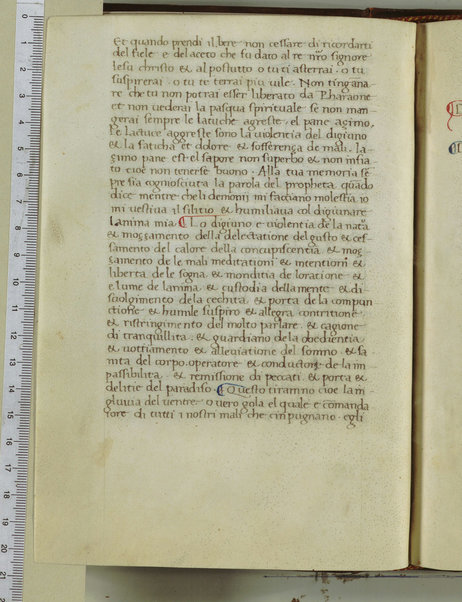 Et quando prendi il bere non cessare di ricordarti
del fiele et del aceto che fu dato al re nr̃o signore
Iesu christo et al postutto o tu ti asterrai. o tu
suspirerai. o tu te terrai piu uile. Non tingãna
re che tu non potrai esser liberato da Pharaone
et non uederai la pasqua spirituale se non man
gerai sempre le latuche agreste. el pane açimo.
Le lactuce aggreste sono la uiolentia del digiuno
et la faticha et dolore et sofferença de mali. la
çimo pane est el sapore non superbo et non infia
to cioe non tenerse buono. Alla tua memoria sẽ
pre sia cognosciuta la parola del propheta. quãdo
dice mentre che li demonij mi faceano molestia io
mi uestiua il silitio. et humiliaua col digiunare
lanima mia. Lo digiuno e uiolentia de la natᵃ
et moççamento della delectatione del gusto et ces
samento del calore della concupiscentia. et moç
çamento de le mali meditationi et intentioni et
liberta de le sogna. et monditia de loratione et
e lume de lanima. et custodia della mente. et di
scioglimento de la cechita. et porta de la compun
ctione et humile suspiro et allegra contritione
et ristringimento del molto parlare. et cagione
di tranquillita. et guardiano de la obedientia
et uotiamento et alleuiatione del somno. et sa
nita del corpo. operatore et conductore de la im
passibilita. et remissione di peccati. et porta et
delitie del paradiso. Questo tiranno cioe la in
gluuia del uentre. o uero gola el quale e comanda
tore di tutti i nostri mali che cinpugnano. egli